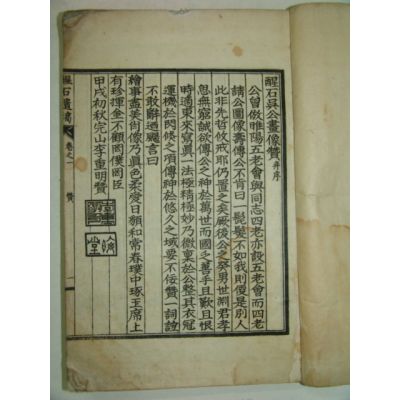 醒石吳公畫像贊 幷序
公曾倣睢陽五老會與同志四老亦設五老會而四老
請公圖像壽傳公不肯曰一髭髮不如我則便是別人
此非先哲攸戒耶仍置之矣厥後公之癸男世淵君孝
思無窮誠欲傳公之神於萬世而國乏善手且歎且恨
時適東來寫眞一法極精極妙乃稟於公整其衣冠
運機於閃倏之項傳神於悠久之域要不佞贊一詞誼
不敢辭迺颺言曰
繪事盡美術乃眞色柔愛日顏和常春璞中琢玉席上
有珍揮金不顧罔僕罔臣
甲戌初秋完山李重明贊
醒石遺稿 卷之一 贊 一